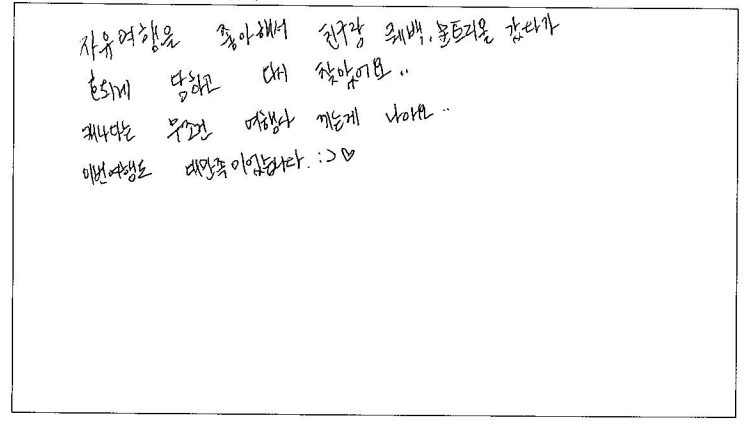 자유여행을 좋아해서 친구랑 퀘백, 몬트리올 갔다가
호되게 당하고 다시 찾았어요..
캐나다는 무조건 여행사 끼는게 나아요..
이번여행도 대만족이었습니다. :) ♡